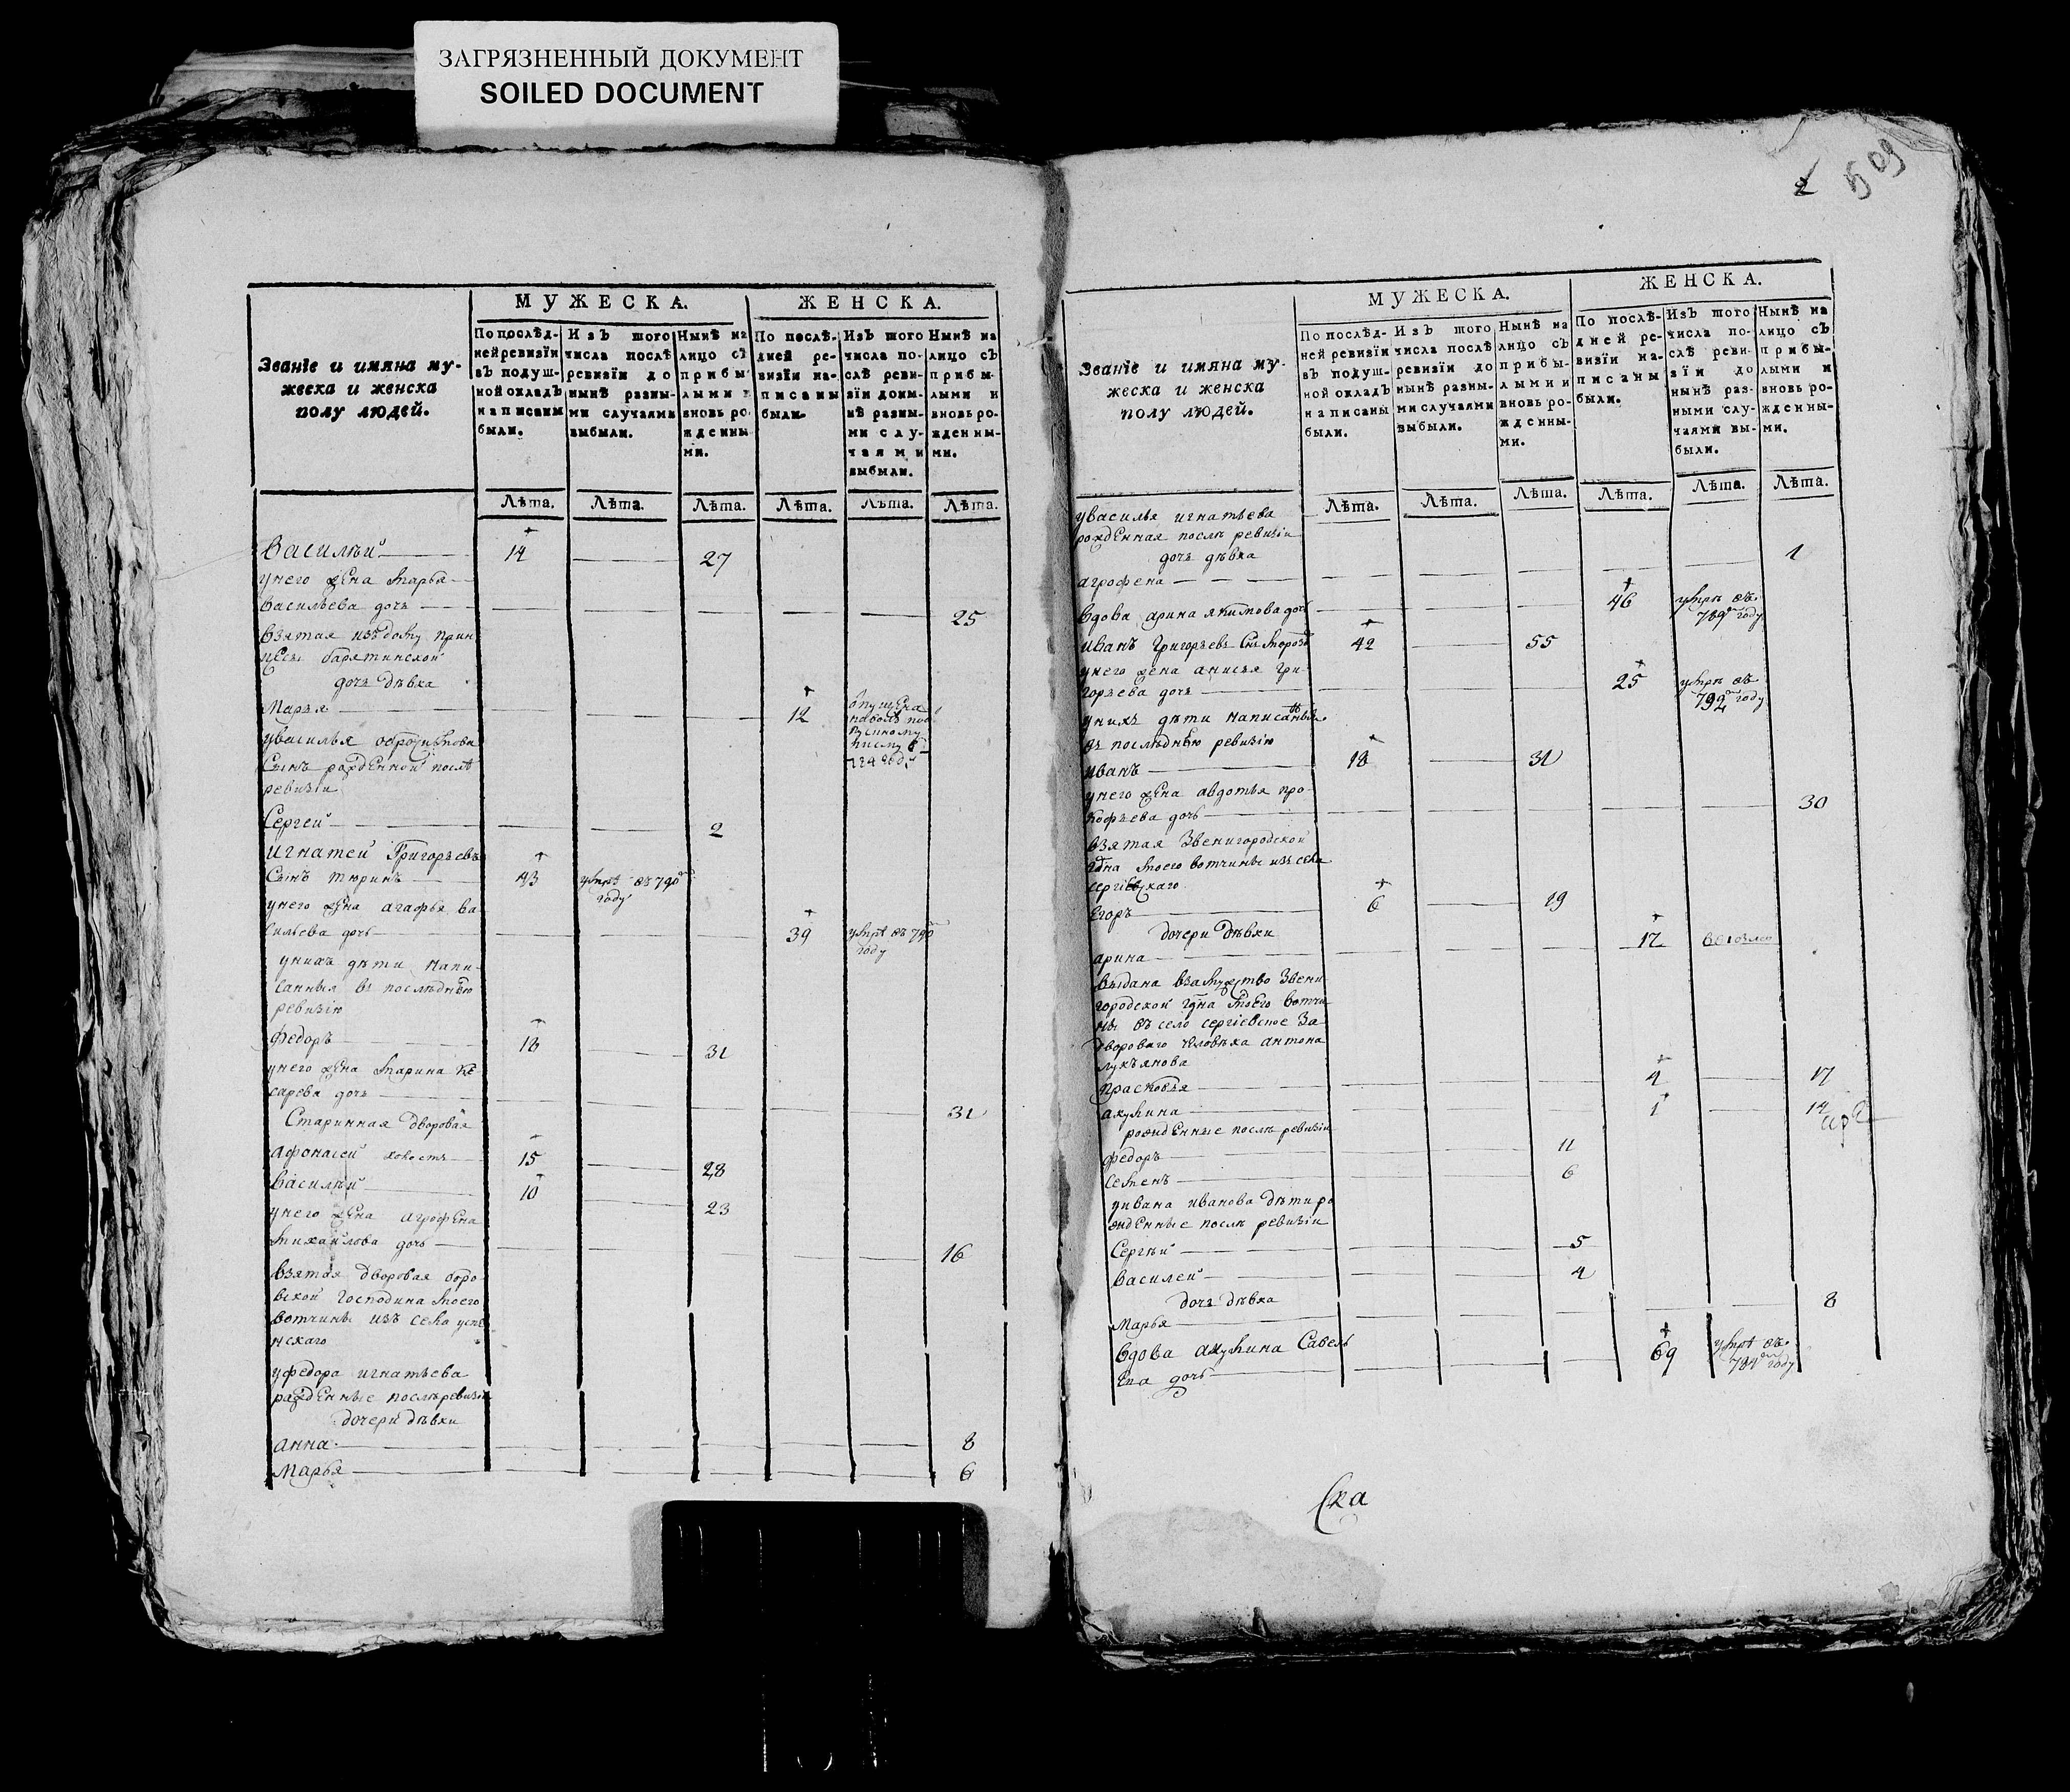 ЗАГРЯЗНЕННЫЙ ДОКУМЕНТ
SOILED DOCUMENT
МУЖЕСКА. ЖЕНСКА.
Званїе и имяна му-
жеска и женска
полу людей.
По послѣд-
ней ревизїи
въ подуш-
ной окладъ
написаны
были.
Изъ того
числа послѣ
ревизїи до
нынѣ разны-
ми случаями
выбыли.
Нынѣ на
лицо съ
прибы
лыми и
вновь ро
жденны
ми.
По послѣ-
дней ре-
визїи на-
писаны
были.
Изъ того
числа по-
слѣ реви-
зїи доны-
нѣ разны-
ми слу-
чаями
выбыли.
Нынѣ на
лицо съ
прибы-
лыми и
вновь ро-
жденны-
ми.
Лѣта. Лѣта. Лѣта. Лѣта. Лѣта. Лѣта.
Василѣй 14 27
унего жена марья
васильева дочь 25
взятая изъ дому прин
цесы барятинской
дочь дѣвка
Марья 12 отпущена
уваселья
Сынъ рожденной послѣ
ревизіи
Сергей 2
Игнатей Григорьевъ
Сынъ тюринъ 43 умре въ 790 году
унего жена агафья ва
сильева дочь 39 умре въ 790 году
унихъ дѣти напи
санныя въ последнею
ревизію
Федоръ 18 31
унего жена марина ке
сарева дочь 31
Старинная дворовая
Афонасей холостъ 15 28
Василѣй 10 23
унего жена агрофена
михайлова дочь 16
взятая дворовая боро
вской господина моего
вотчины изъ села успе
нскаго
уфедора игнатьева
рожденные послѣ ревизіи
дочери дѣвки
анна 8
Марья 6
2 509
МУЖЕСКА. ЖЕНСКА.
Званїе и имяна му-
жеска и женска
полу людей.
По послѣд-
ней ревизїи
въ подуш-
ной окладъ
написаны
были.
Изъ того
числа послѣ
ревизїи до
нынѣ разны-
ми случаями
выбыли.
Нынѣ на
лицо съ
прибы-
лыми и
вновь ро-
жденны-
ми.
По послѣ-
дней ре-
визїи на-
писаны
были.
Изъ того
числа по-
слѣ реви-
зїи до
нынѣ раз-
ными слу-
чаями вы-
были.
Нынѣ на
лицо съ
прибы-
лыми и
вновь ро-
жденны-
ми.
Лѣта. Лѣта. Лѣта. Лѣта. Лѣта. Лѣта.
увасилья игнатьева
рожденная послѣ ревизіи
дочь дѣвка
агрофена 1
вдова арина якимова дочь 46 умре въ 789м году
Иванъ Григорьевъ 42 55
унего жена анисья гри
горьева дочь 25 умре въ 792м году
унихъ дѣти написанные
въ последнею ревизію
Иванъ 18 31
унего жена авдотья про
кофьева дочь 30
взятая Звенигородской
гдна моего вотчины изъ села
сергіевскаго
Егоръ 6 19
дочери дѣвки
арина 12
выдана взамужство Звени
городской гдна моего вотчи
ны въ село сергіевское за
двороваго человѣка антона
лукьянова
прасковья 4 17
акулина 1 14
рожденные послѣ ревизіи
федоръ 11
семенъ 6
уивана иванова дѣти ро
жденные послѣ ревизіи
Сергѣй 5
василей 4
дочь дѣвка
Марья 8
вдова акулина Савель
ева дочь 69 умре въ 784м году
Ска